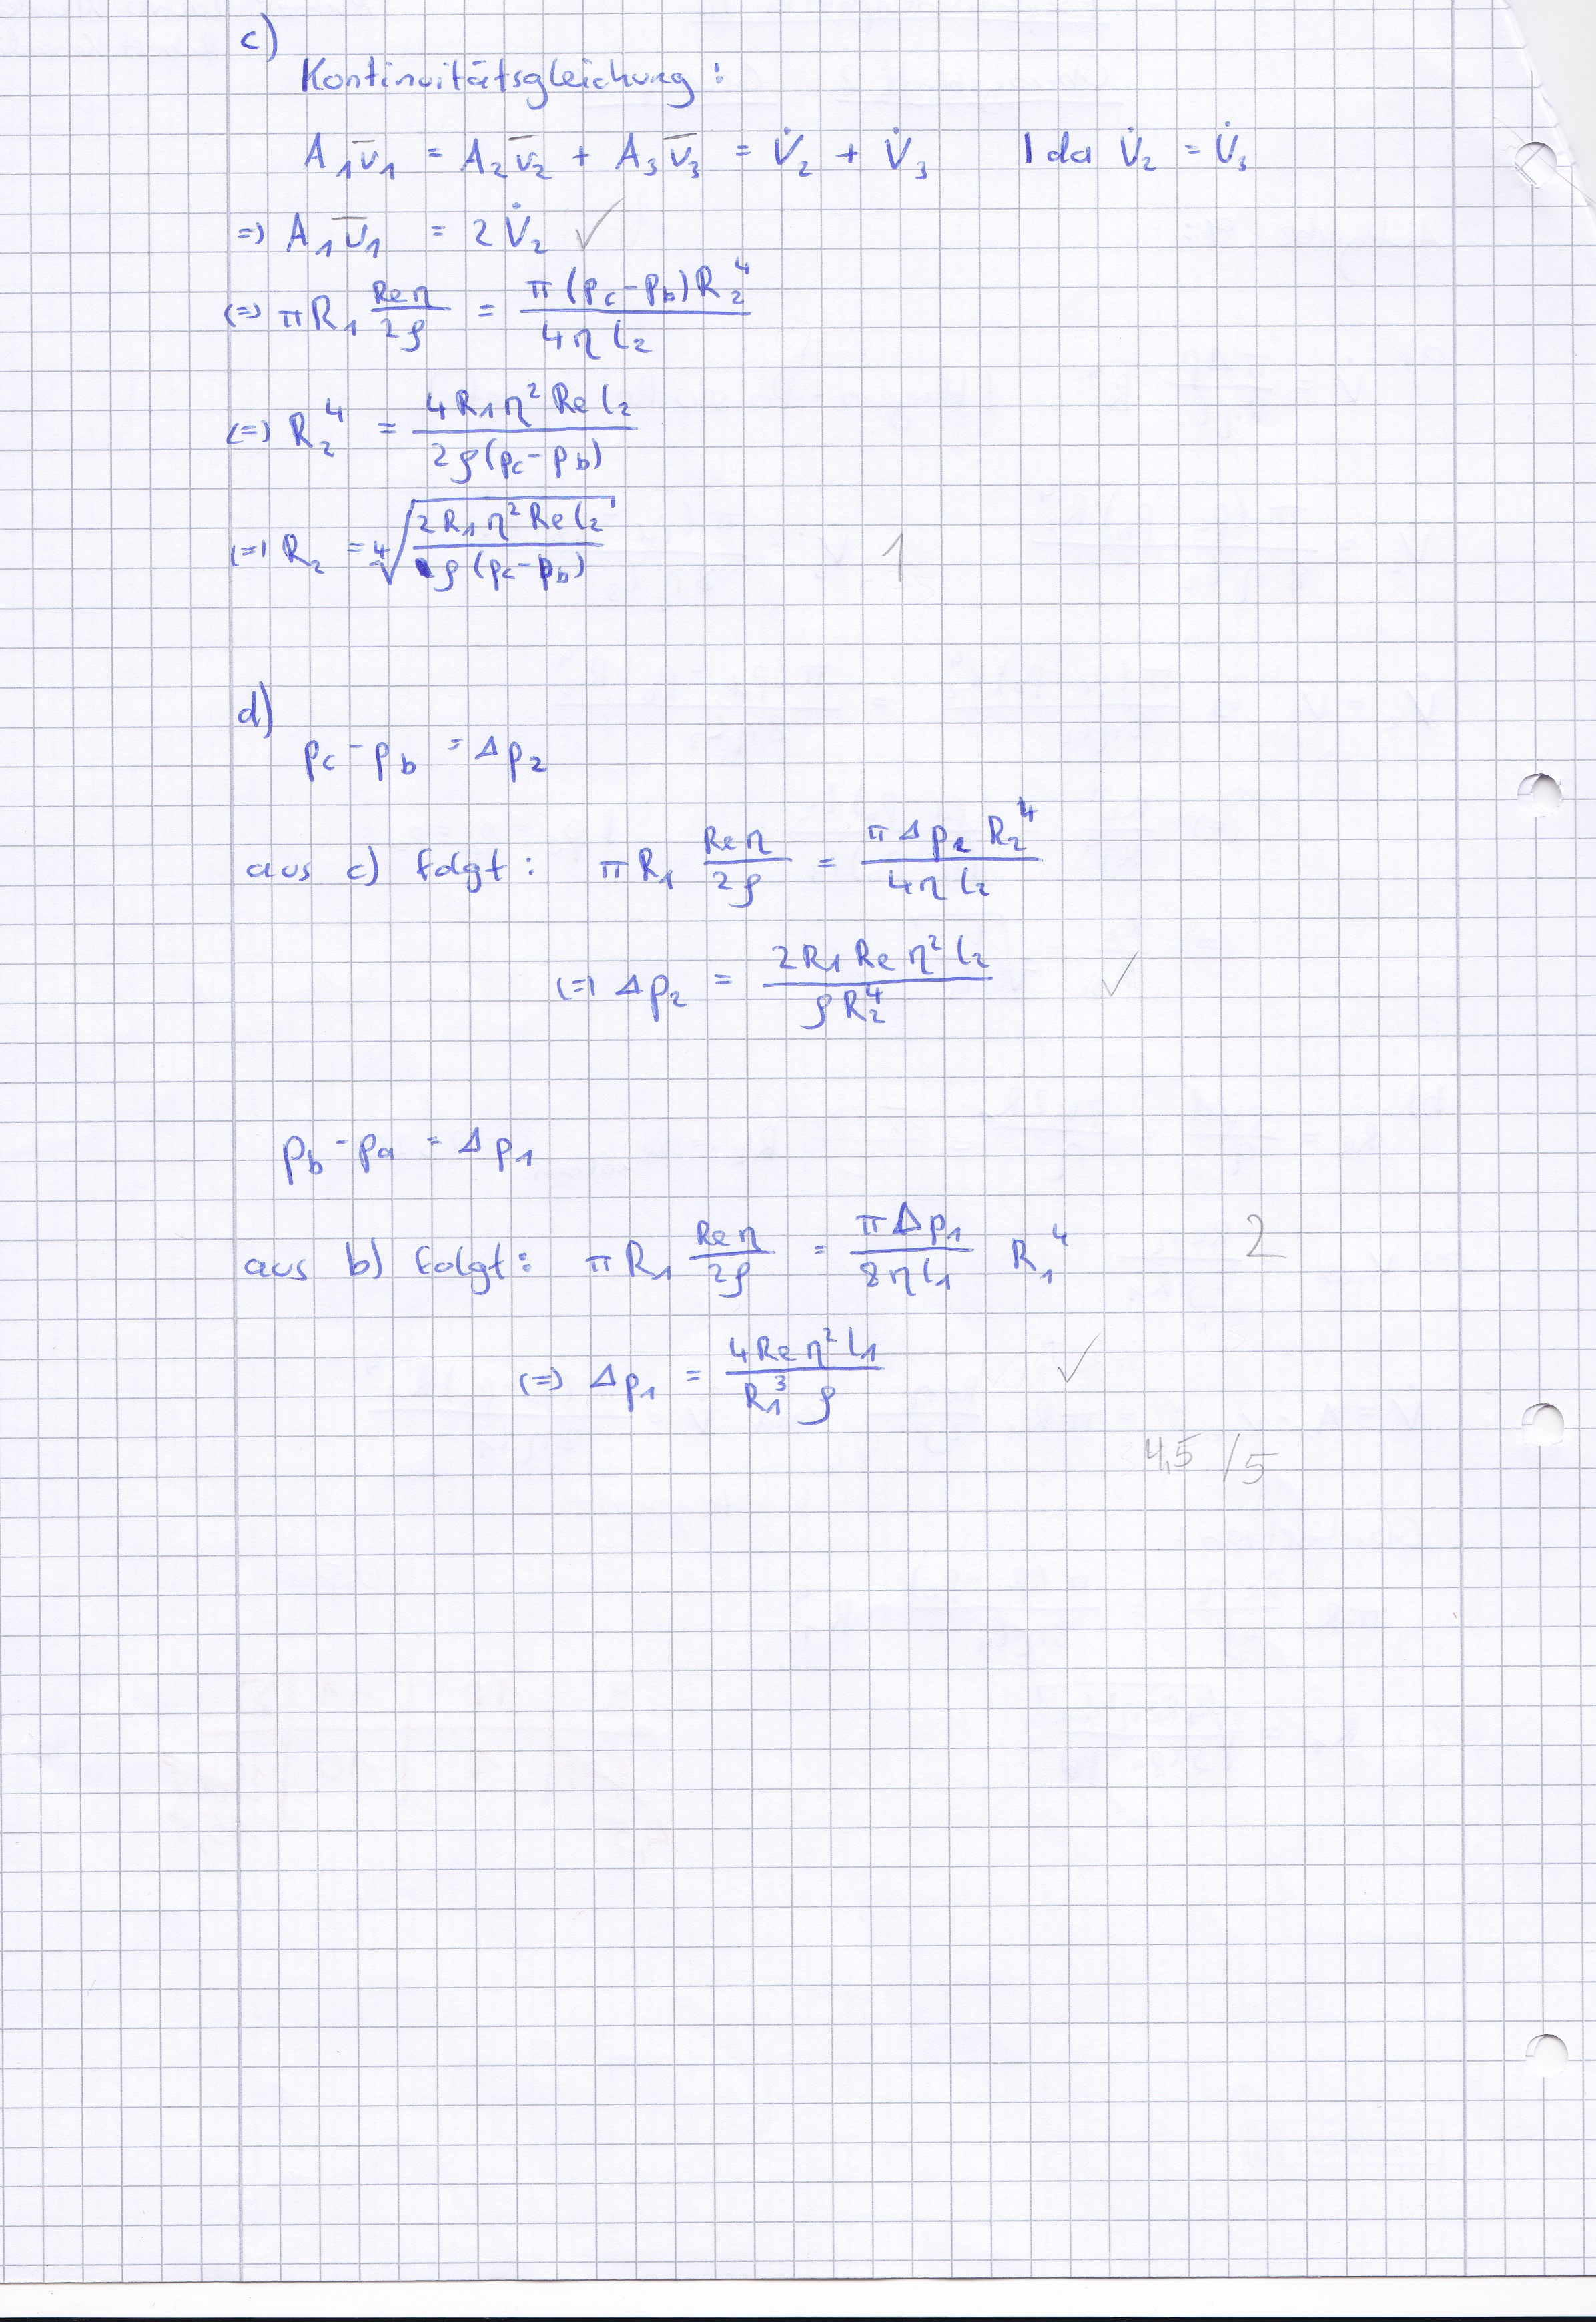 c)
Kontinuitätsgleichung:
A₁v̄₁ = A₂v̄₂ + A₃v̄₃ = V̇₂ + V̇₃ | da V̇₂ = V̇₃
=> A₁v̄₁ = 2V̇₂ ✓
<=> πR₁ Reη/2ρ = π(p_c-p_b)R₂⁴/4ηl₂
<=> R₂⁴ = 4R₁η²Rel₂/2ρ(p_c-p_b)
<=> R₂ = ⁴√(2R₁η²Rel₂/ρ(p_c-p_b)) 1
d)
p_c-p_b = Δp₂
aus c) folgt: πR₁ Reη/2ρ = πΔp₂R₂⁴/4ηl₂
<=> Δp₂ = 2R₁Reη²l₂/ρR₂⁴ ✓
p_b-p_a = Δp₁
aus b) folgt: πR₁ Reη/2ρ = πΔp₁/8ηl₁ R₁⁴ 2
<=> Δp₁ = 4Reη²l₁/R₁³ρ ✓
4,5/5